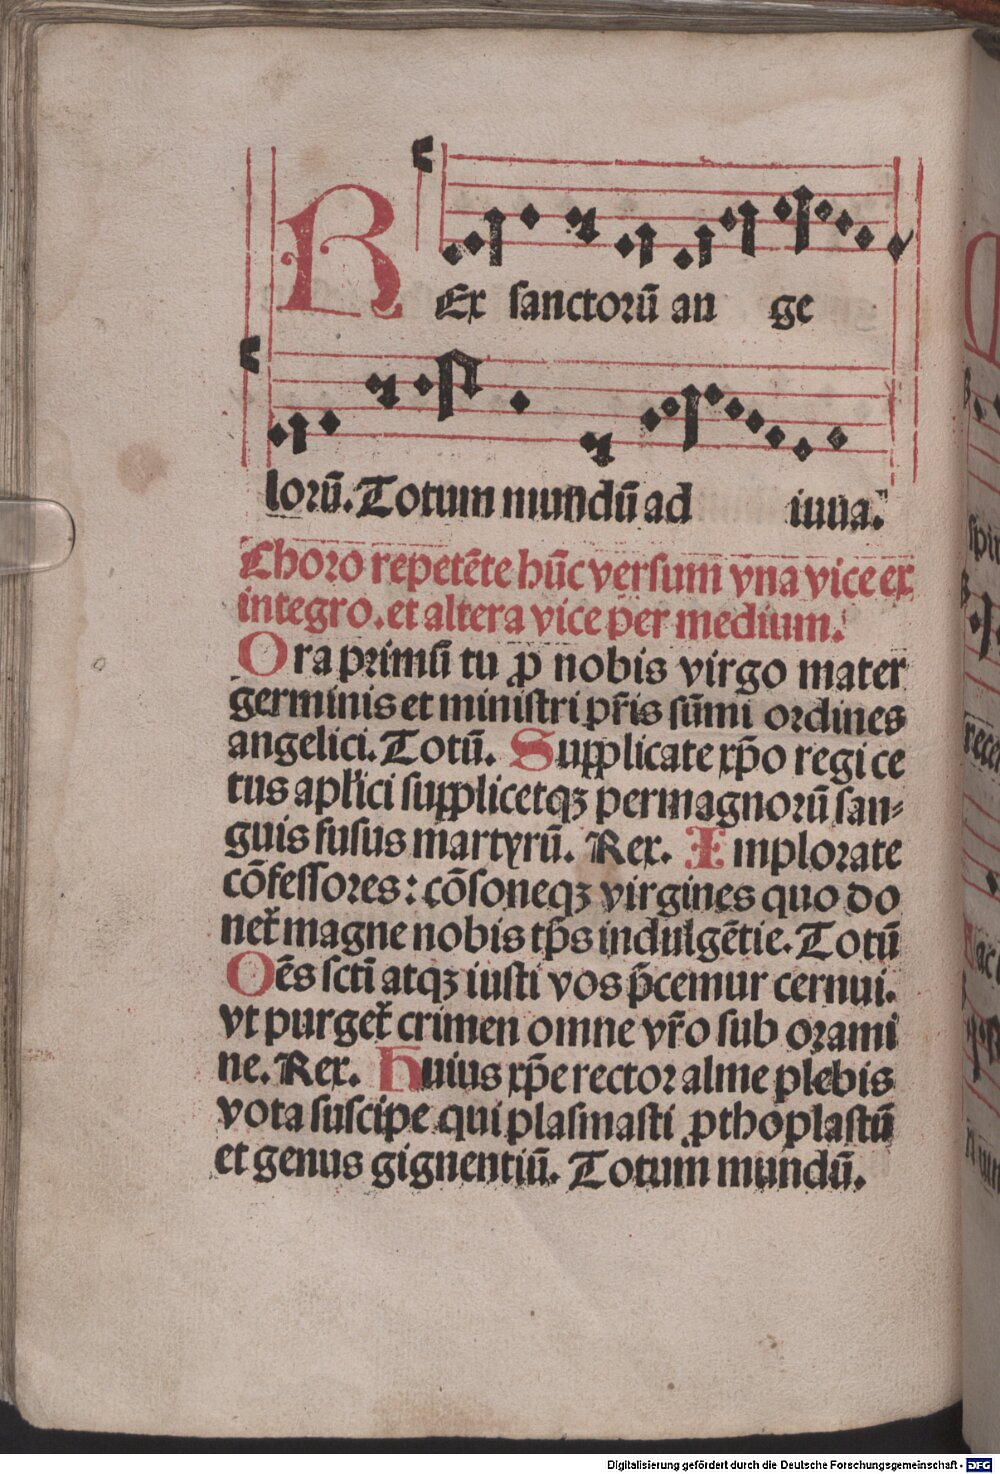 REx sanctorū an ge
lorū. Totum mundū ad iuua.
Choro repetēte hūc versum vna vice ex
integro. et altera vice per medium.
Ora primū tu ꝓ nobis virgo mater
germinis et ministri pr̄is sūmi ordines
angelici. Totū. Supplicate xp̄o regi ce
tus apl'ici supplicetqꝫ permagnorū san-
guis fusus martyrū. Rex. Implorate
cōfessores: cōsoneqꝫ virgines quo do
net̄ magne nobis tp̄s indulgētie. Totū
Oēs sctī atqꝫ iusti vos p̄cemur cernui.
vt purget̄ crimen omne vr̄o sub orami
ne. Rex. Huius xp̄e rector alme plebis
vota suscipe qui plasmasti ꝓthoplastū
et genus gignentiū. Totum mundū.
Digitalisierung gefördert durch die Deutsche Forschungsgemeinschaft - DFG